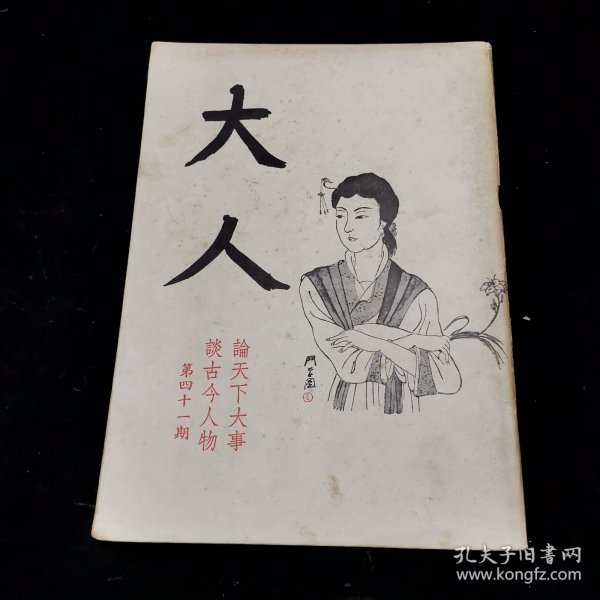 大人
論天下大事
談古今人物
第四十一期
孔夫子旧書网
www.kongfz.com